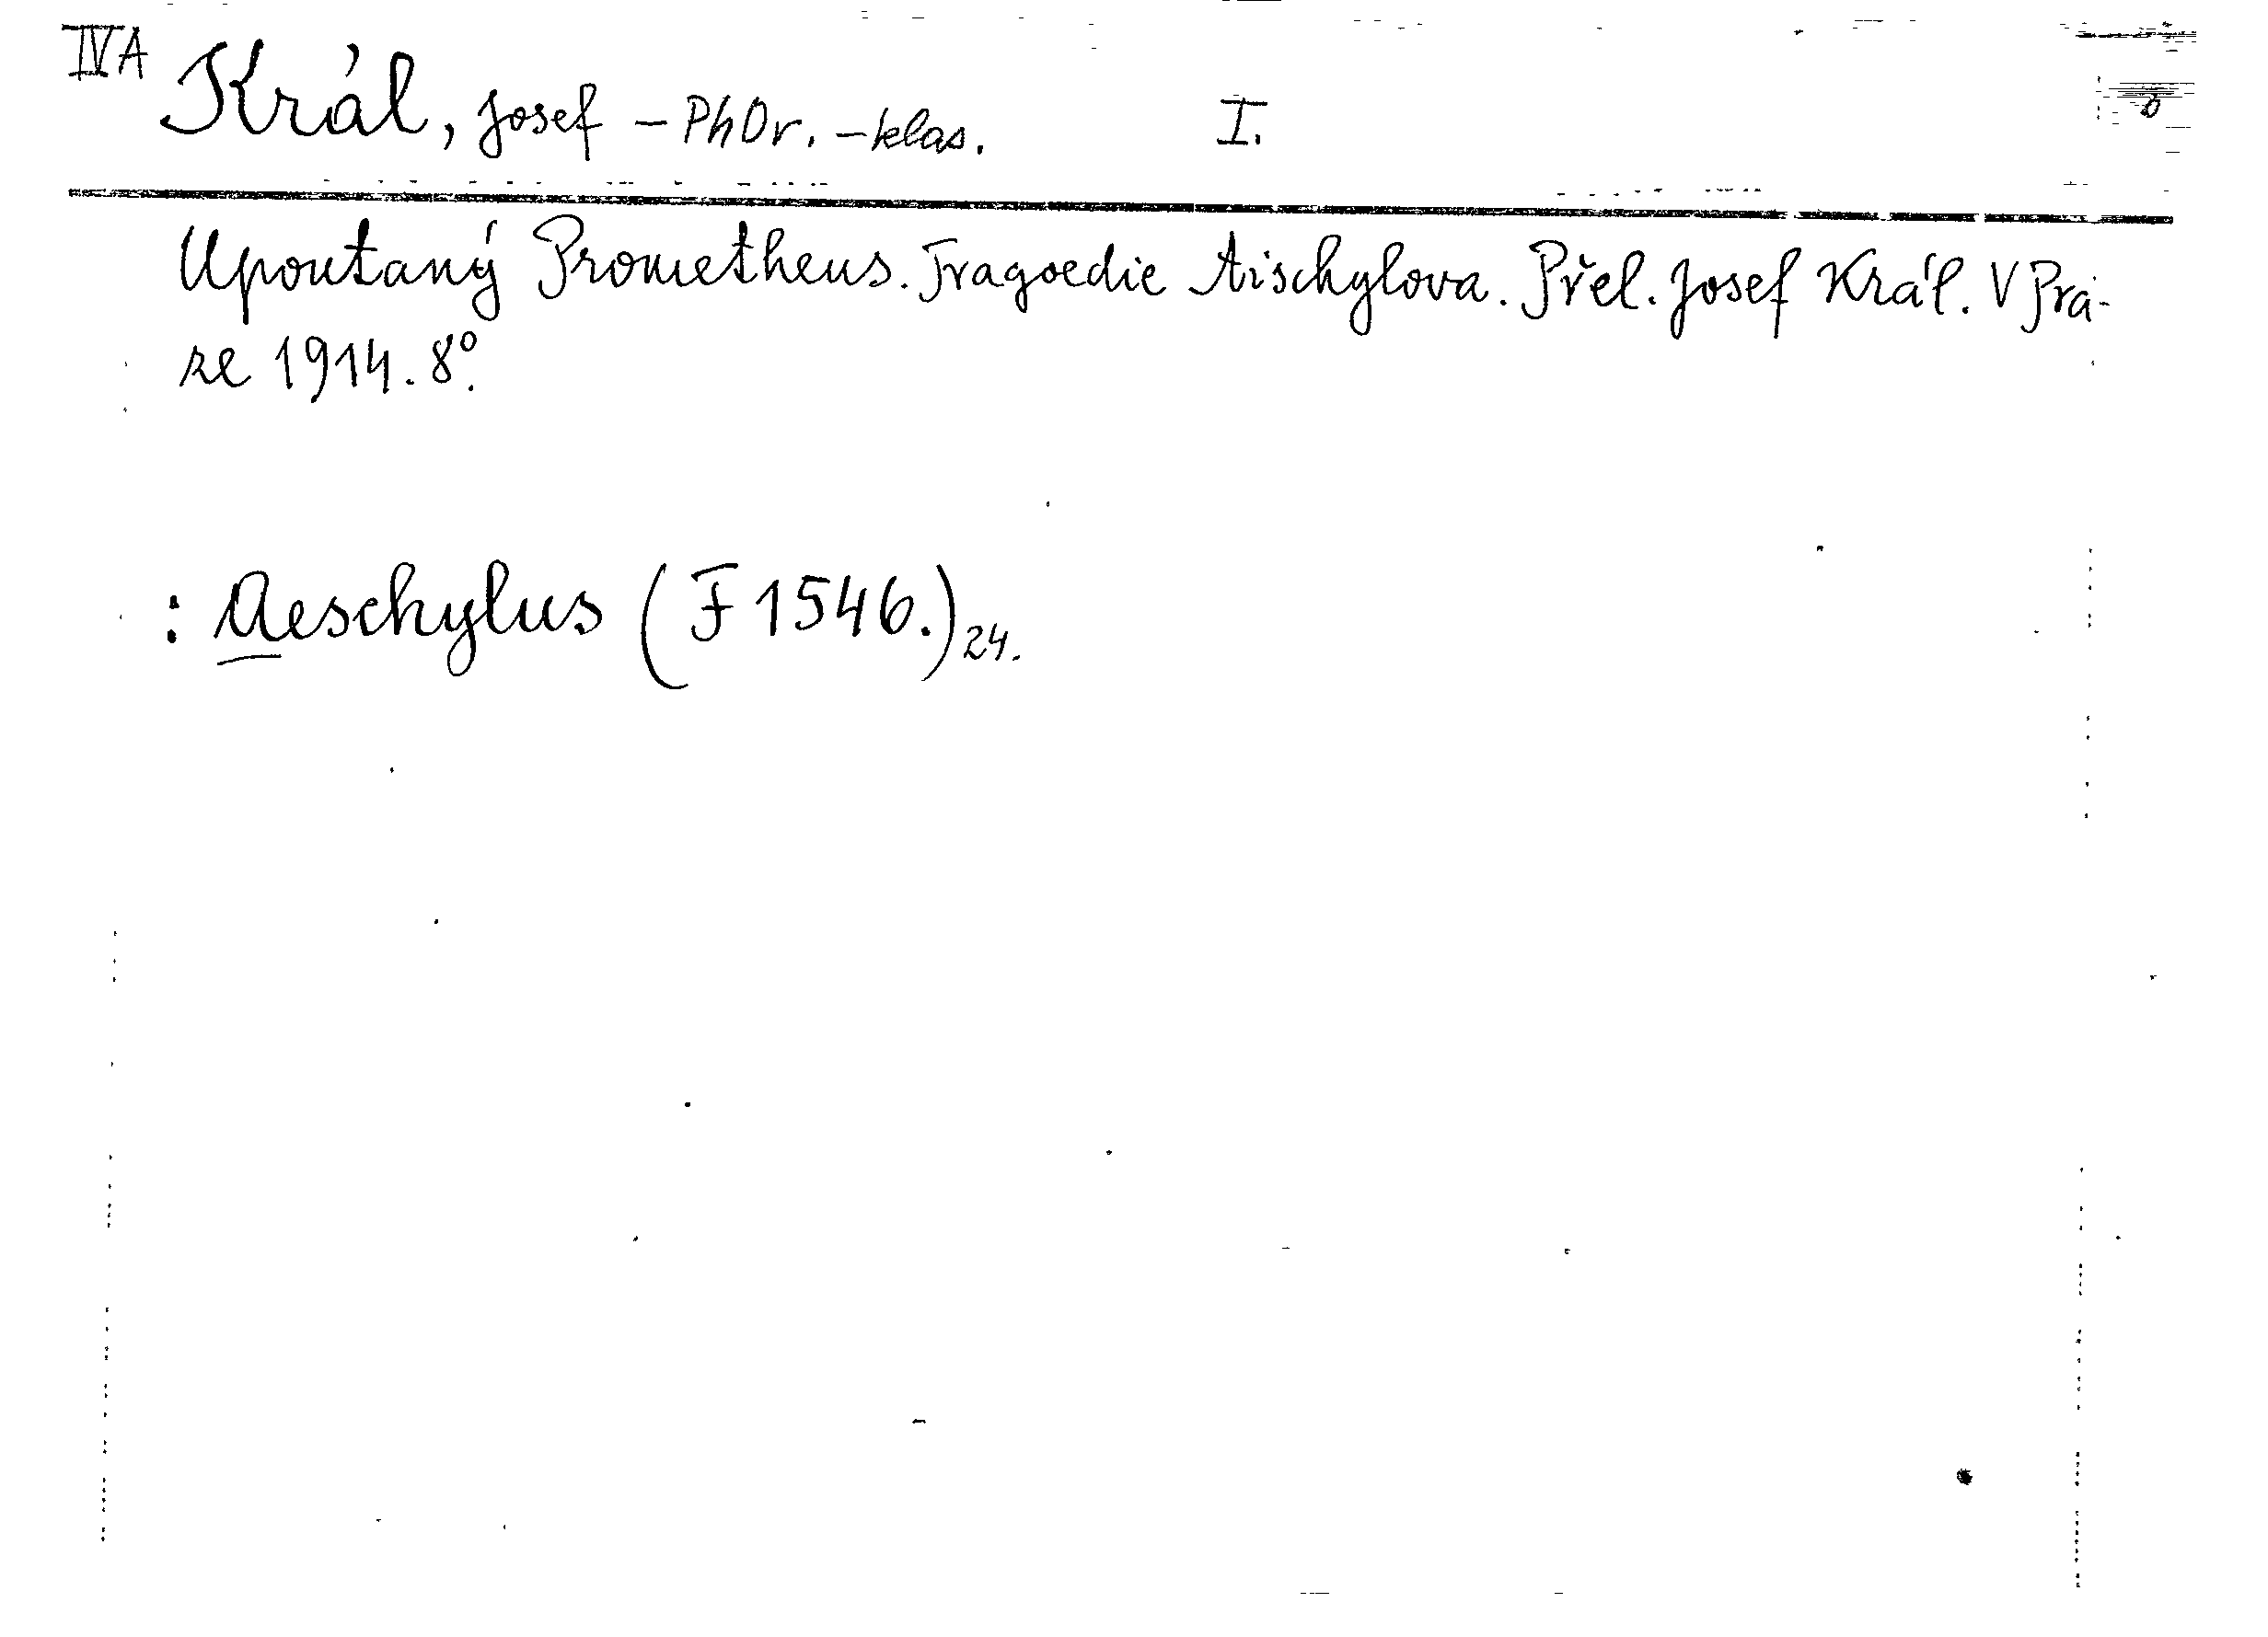 IVA Král, Josef – PhDr. – klas. I.
Upoutaný Prometheus. Tragoedie Aischylova. Přel. Josef Král. V Pra-
ze 1914. 8°.
: Aeschylus (F 1546.) 24.